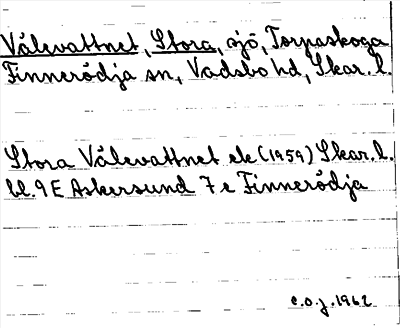 Välevattnet, Stora, sjö, Torpaskoga
Finnerödja sn, Vadsbo hd, Skar. l.
Stora Välevattnet ek (1959) Skar. l.
bl. 9 E Askersund 7 e Finnerödja
C.O.J. 1962